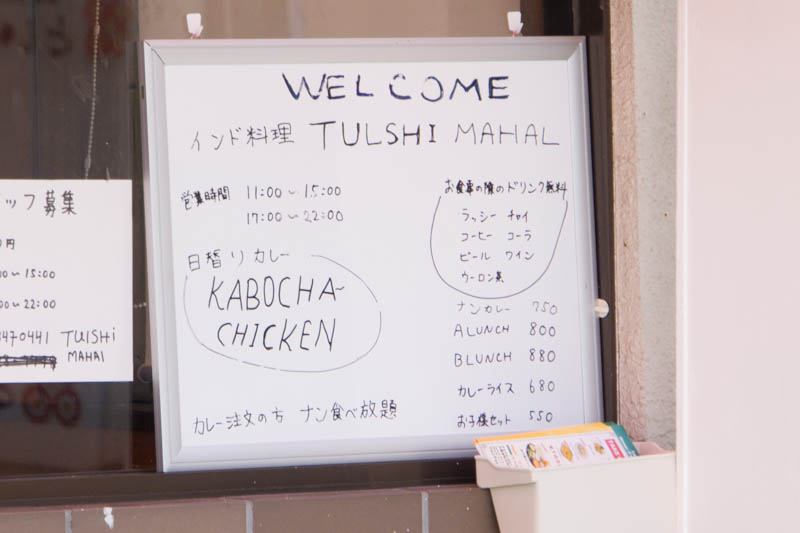 WELCOME
インド料理 TULSHI MAHAL
営業時間 11:00~15:00
17:00~22:00
日替りカレー
KABOCHA-
CHICKEN
カレー注文の方 ナン食べ放題
お食事の際のドリンク無料
ラッシー チャイ
コーヒー コーラ
ビール ワイン
ウーロン茶
ナンカレー 750
A LUNCH 800
B LUNCH 880
カレーライス 680
お子様セット 550
ッフ募集
円
00~15:00
00~22:00
3470441 TUlSHi
MAHAl